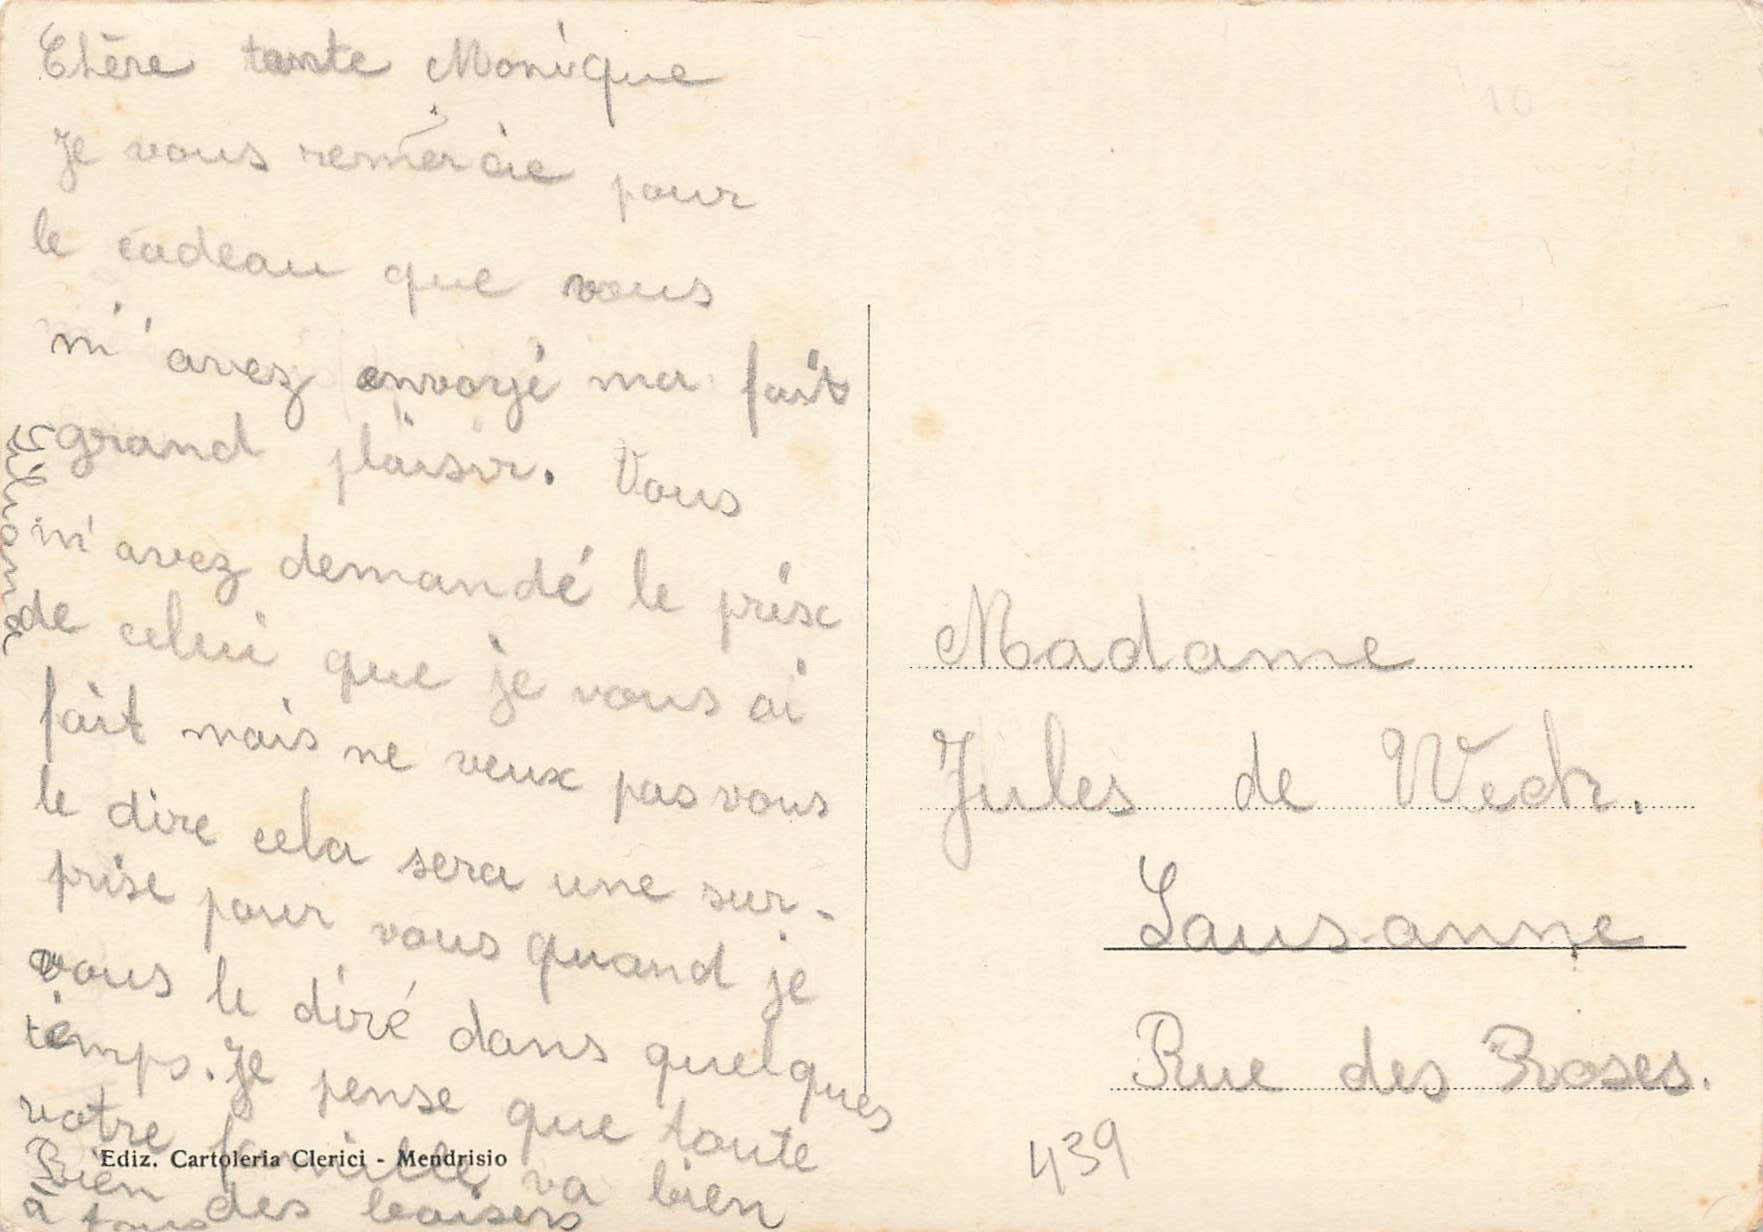 Chère tante Monique
Je vous remercie pour
le cadeau que vous
m'avez envoyé ma fait
grand plaisir. Vous
m'avez demandé le prix
de celui que je vous ai
fait mais ne veux pas vous
le dire cela sera une sur-
prise pour vous quand je
vous le diré dans quelques
temps. Je pense que toute
votre famille va bien
Bien des baisers
à tous
Ediz. Cartoleria Clerici - Mendrisio
Madame
Jules de Weck.
Lausanne
Rue des Roses.
439